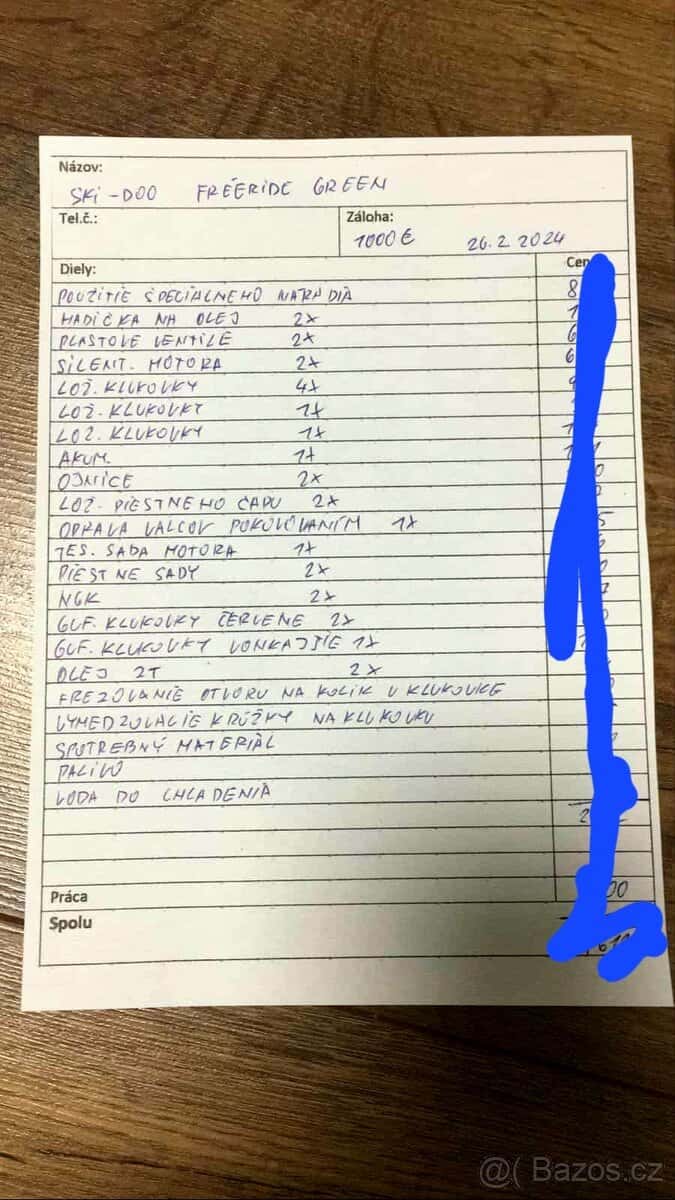 Názov:
SKI-DOO FREERIDE GREEN
Tel.č.: Záloha:
1000 € 26.2 2024
Diely: Cen
POUŽITIE ŠPECIALNEHO NÁRADIA 8
HADIČKA NA OLEJ 2x 1
PLASTOVE VENTILE 2x 6
SILENT. MOTORA 2x 6
LOŽ. KLUKOVKY 4x
LOŽ. KLUKOVKY 1x
LOŽ. KLUKOVKY 1x
AKUM. 1x
OJNICE 2x
LOŽ. PIESTNEHO ČAPU 2x
OPRAVA VALCOV POKOVOVANÍM 1x
TES. SADA MOTORA 1x
PIESTNE SADY 2x
NGK 2x
GUF. KLUKOVKY ČERVENE 2x
GUF. KLUKOVKY VONKAJŠIE 1x
OLEJ 2T 2x
FREZOVANIE OTVORU NA KOLIK V KLUKOVKE
VYMEDZOVACIE KRÚŽKY NA KLUKOVKU
SPOTREBNÝ MATERIÁL
PALIVO
VODA DO CHLADENIA
Práca 00
Spolu
@( Bazos.cz